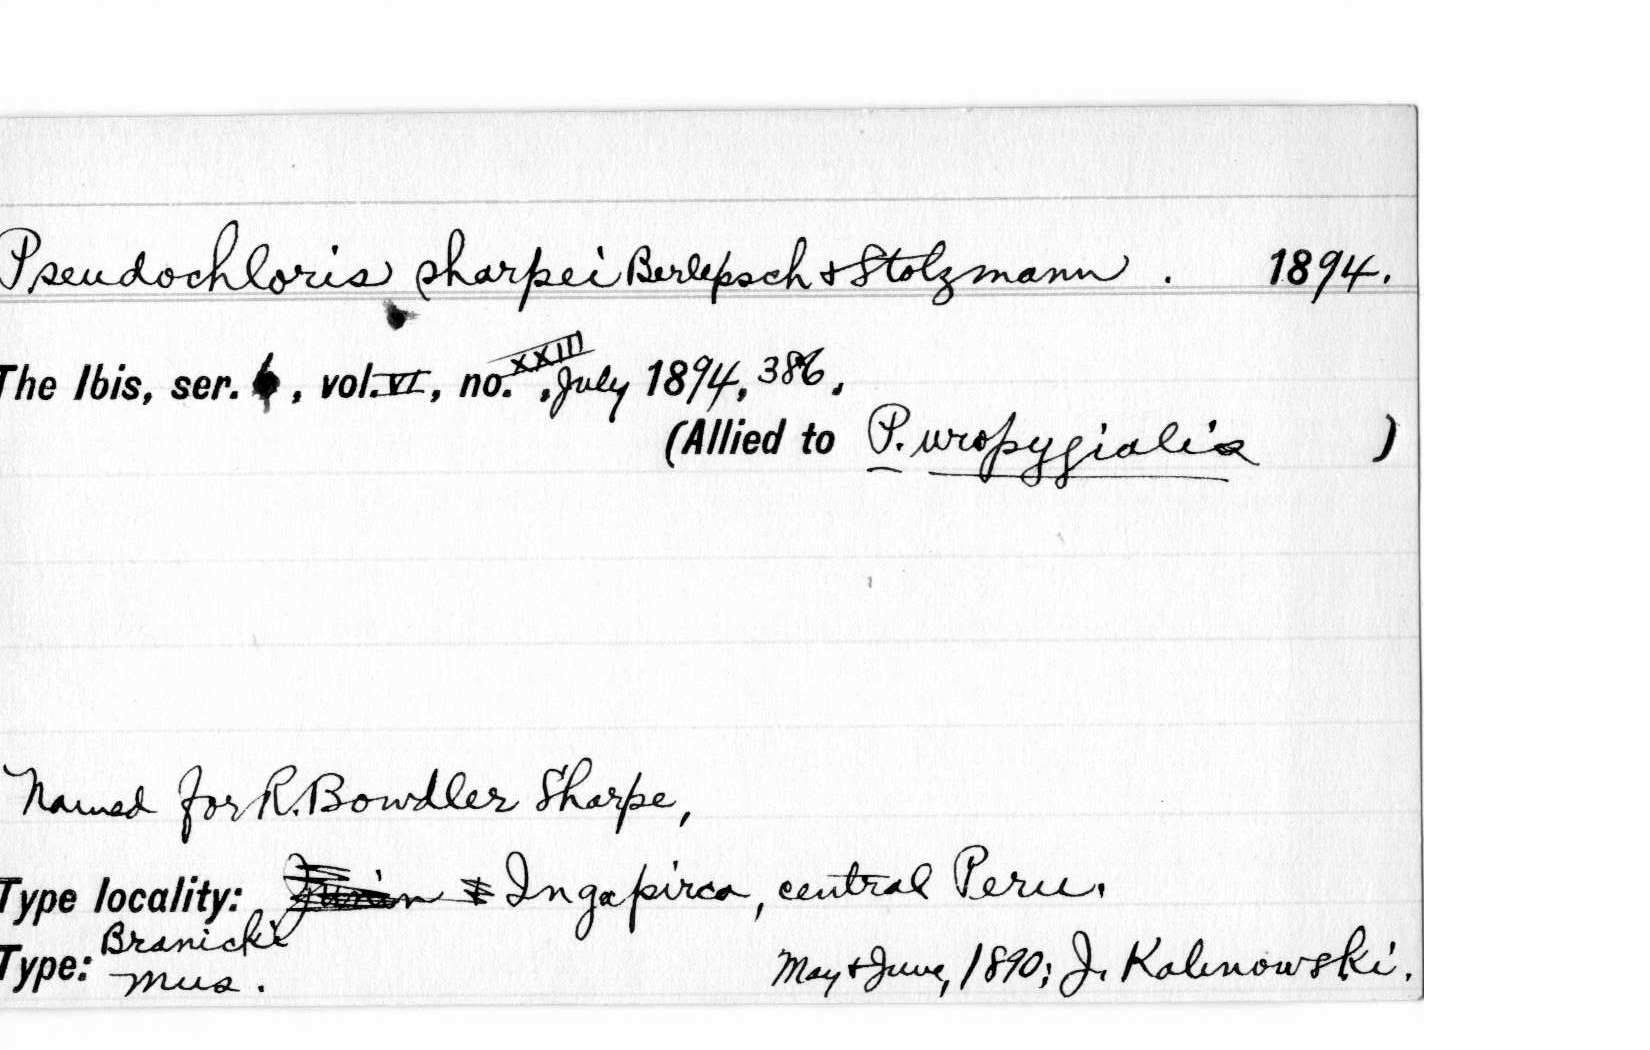 Pseudochloris sharpei Berlepsch & Stolzmann. 1894.
The Ibis, ser. 6, vol. VI, no. XXIII, July 1894, 386.
(Allied to P. uropygialis )
Named for R. Bowdler Sharpe,
Type locality: Junin & Ingapirca, central Peru.
Type: Branicki
Mus. May & June, 1890; J. Kalinowski.